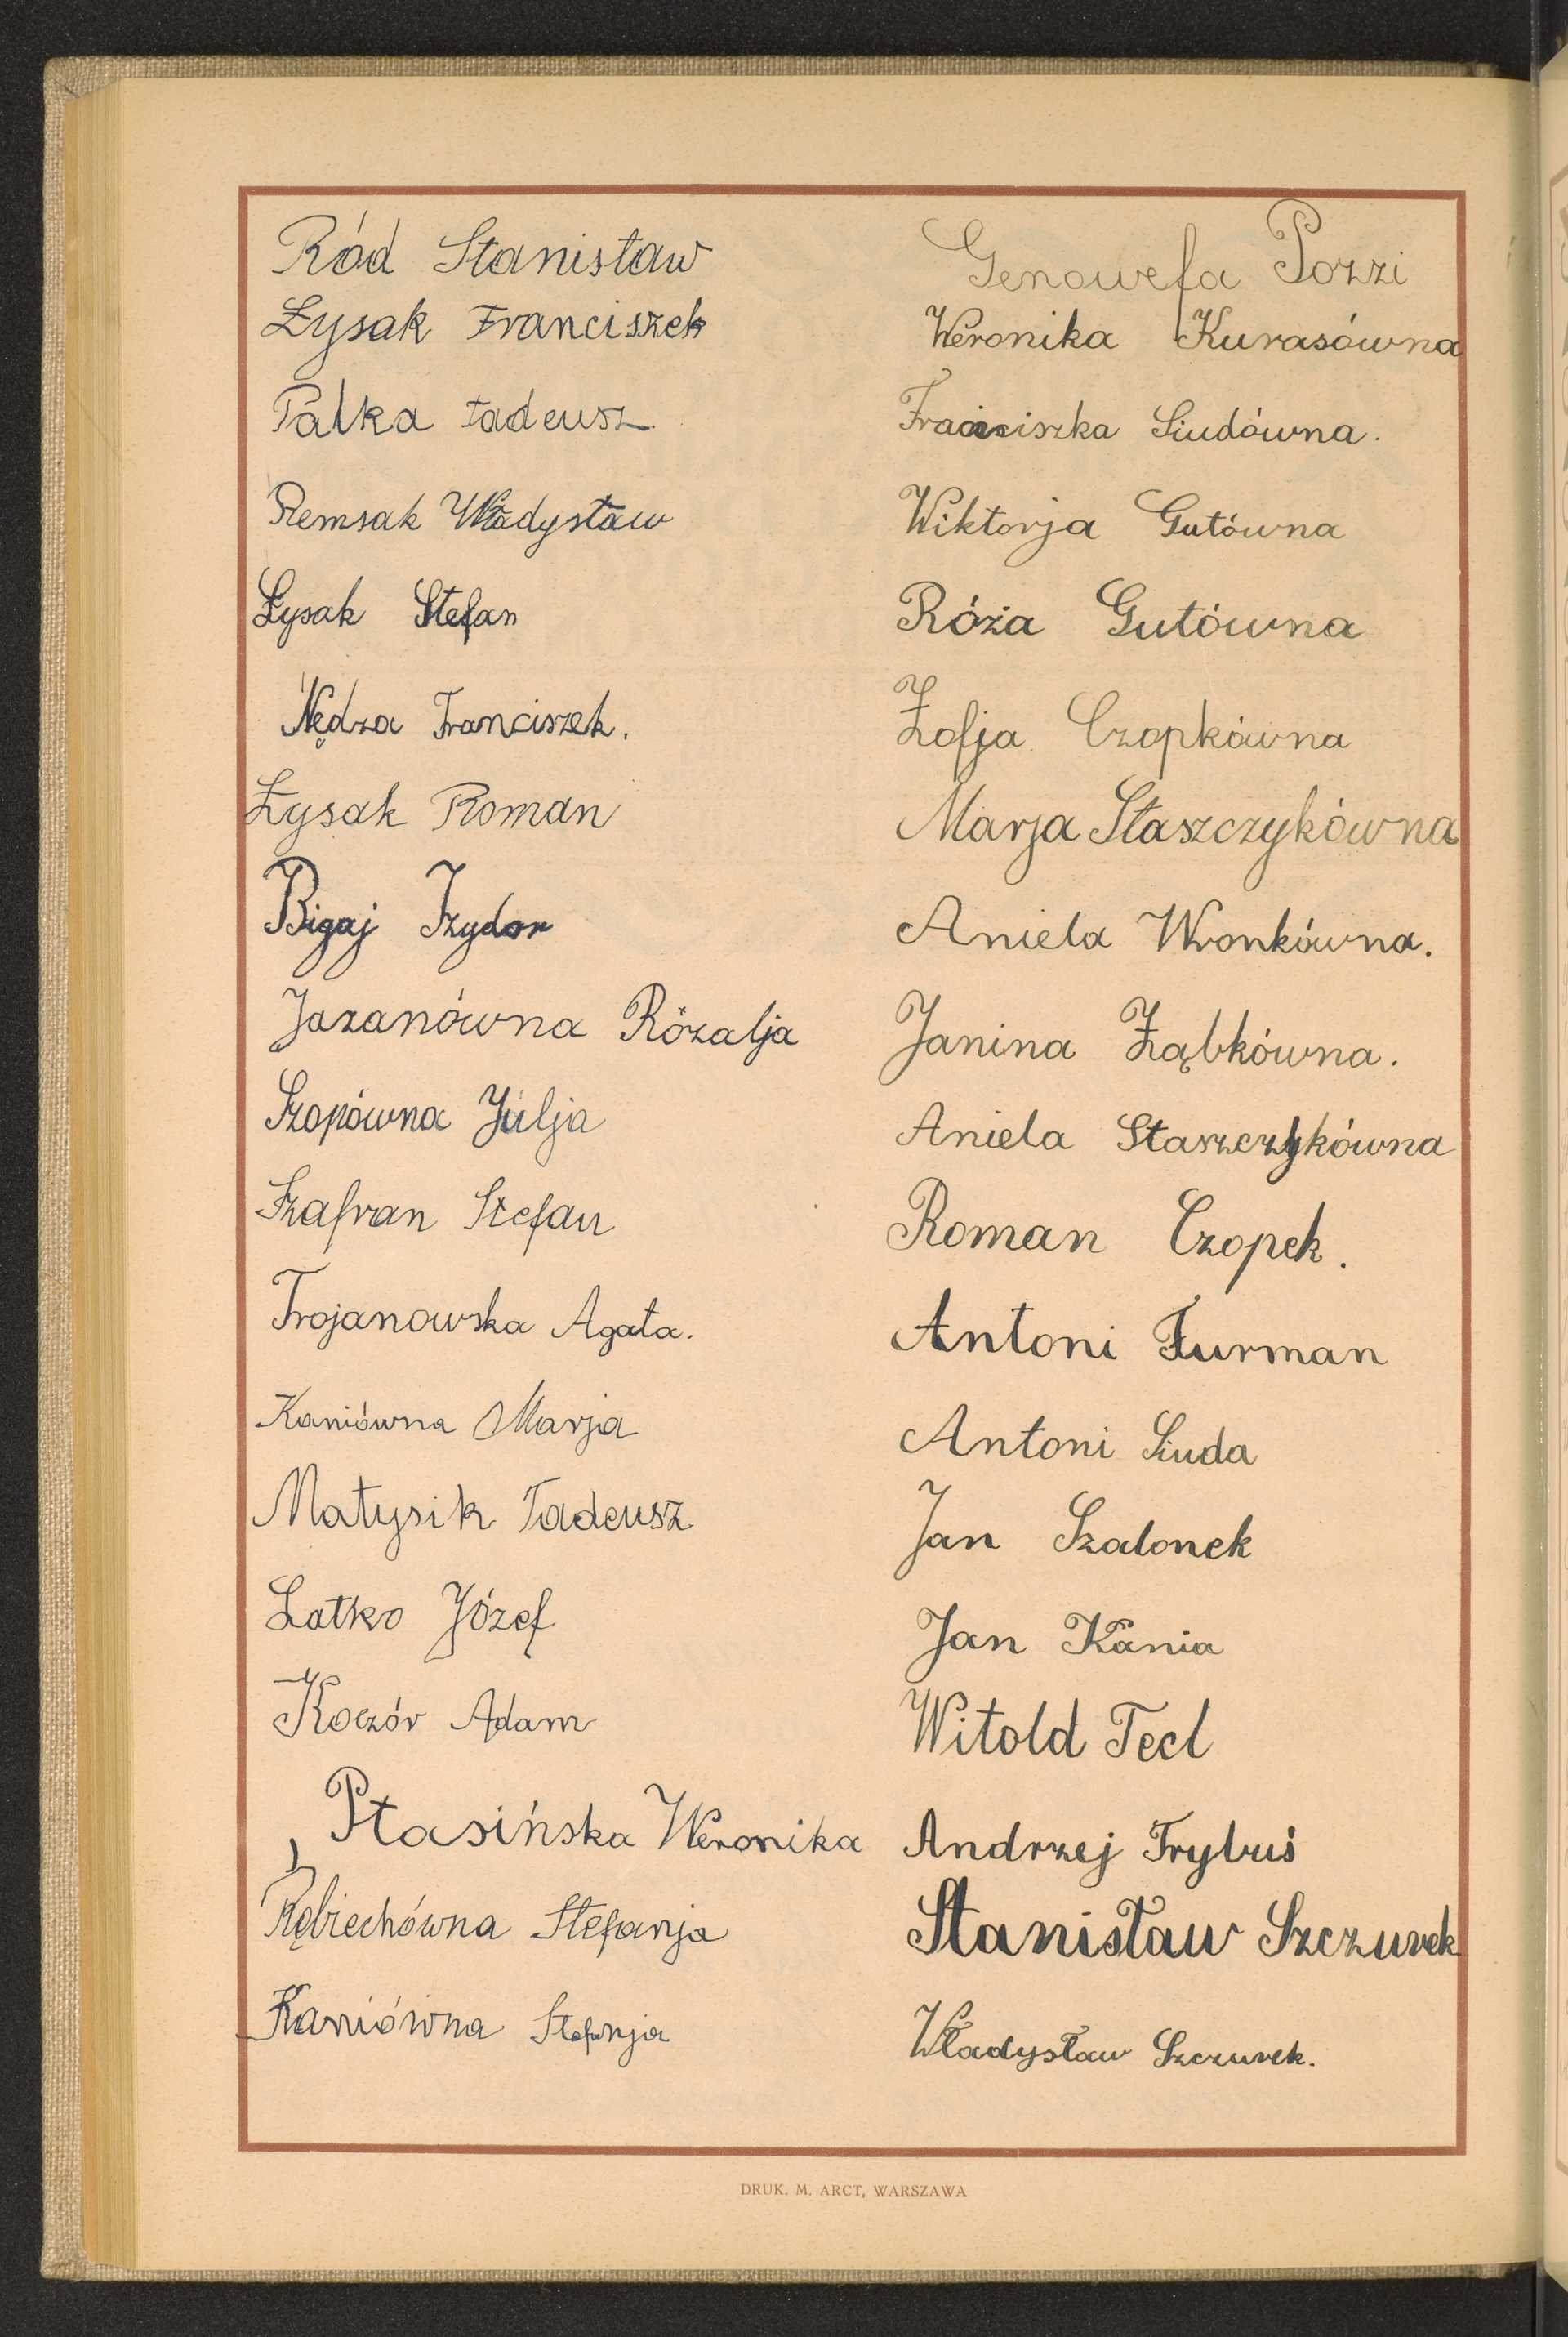 Ród Stanisław
Łysak Franciszek
Pałka tadeusz
Remsak Władysław
Łysak Stefan
Nędza Franciszek.
Łysak Roman
Bigaj Izydor
Jazanówna Rózalja
Szopówna Julja
Szafran Stefan
Trojanowska Agata.
Kaniówna Marja
Matysik Tadeusz
Latko Józef
Koczór Adam
Ptasińska Weronika
Rębiechówna Stefanja
Kaniówna Stefanja
Genowefa Pozzi
Weronika Kurasówna
Franciszka Siudówna.
Wiktorja Gutówna
Róża Gutówna
Zofja Czopkówna
Marja Staszczykówna
Aniela Wronkówna.
Janina Ząbkówna.
Aniela Staszczykówna
Roman Czopek.
Antoni Furman
Antoni Siuda
Jan Szalonek
Jan Kania
Witold Tecl
Andrzej Trybuś
Stanisław Szczurek
Władysław Szczurek.
DRUK. M. ARCT, WARSZAWA